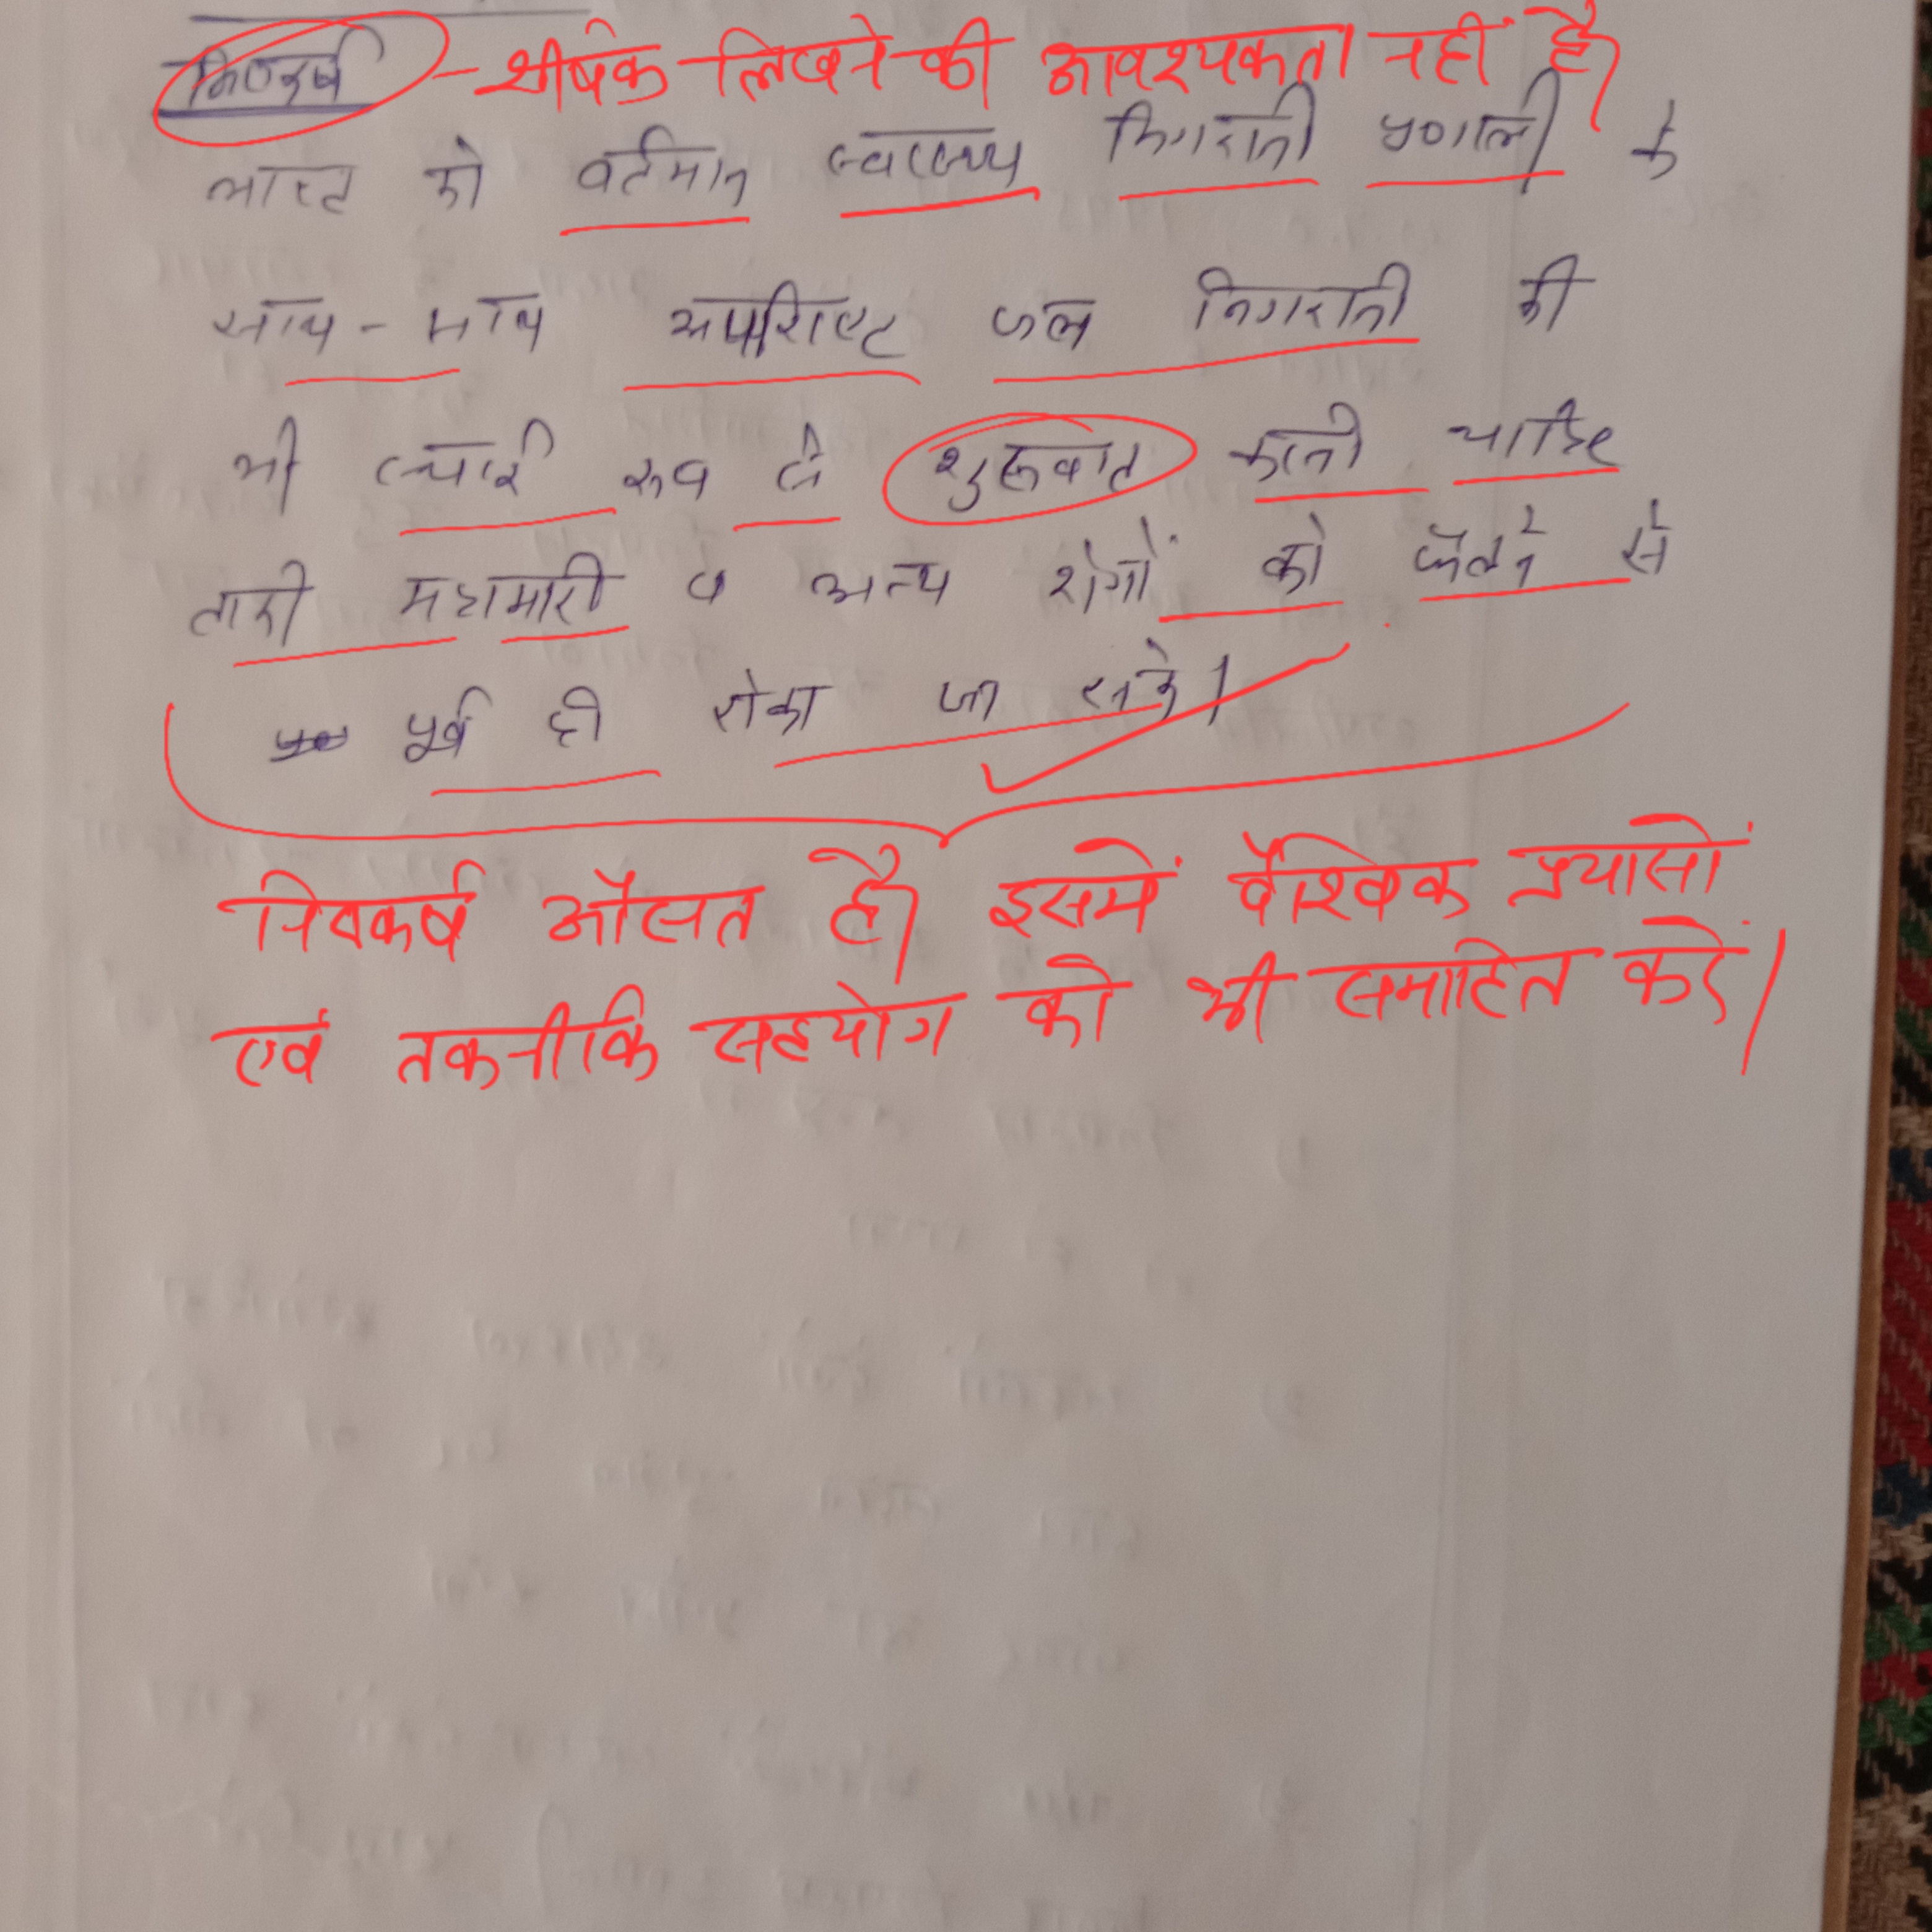 निष्कर्ष - शीर्षक लिखने की आवश्यकता नहीं है।
भारत को वर्तमान स्वास्थ्य निगरानी प्रणाली के
साथ - साथ अपशिष्ट जल निगरानी की
भी स्थाई रूप से शुरूवात करनी चाहिए
ताकी महामारी व अन्य रोगों को फैलने से
पूर्व ही रोका जा सके।
निष्कर्ष औसत है। इसमें वैश्विक प्रयासों
एवं तकनीकि सहयोग को भी समाहित करें।